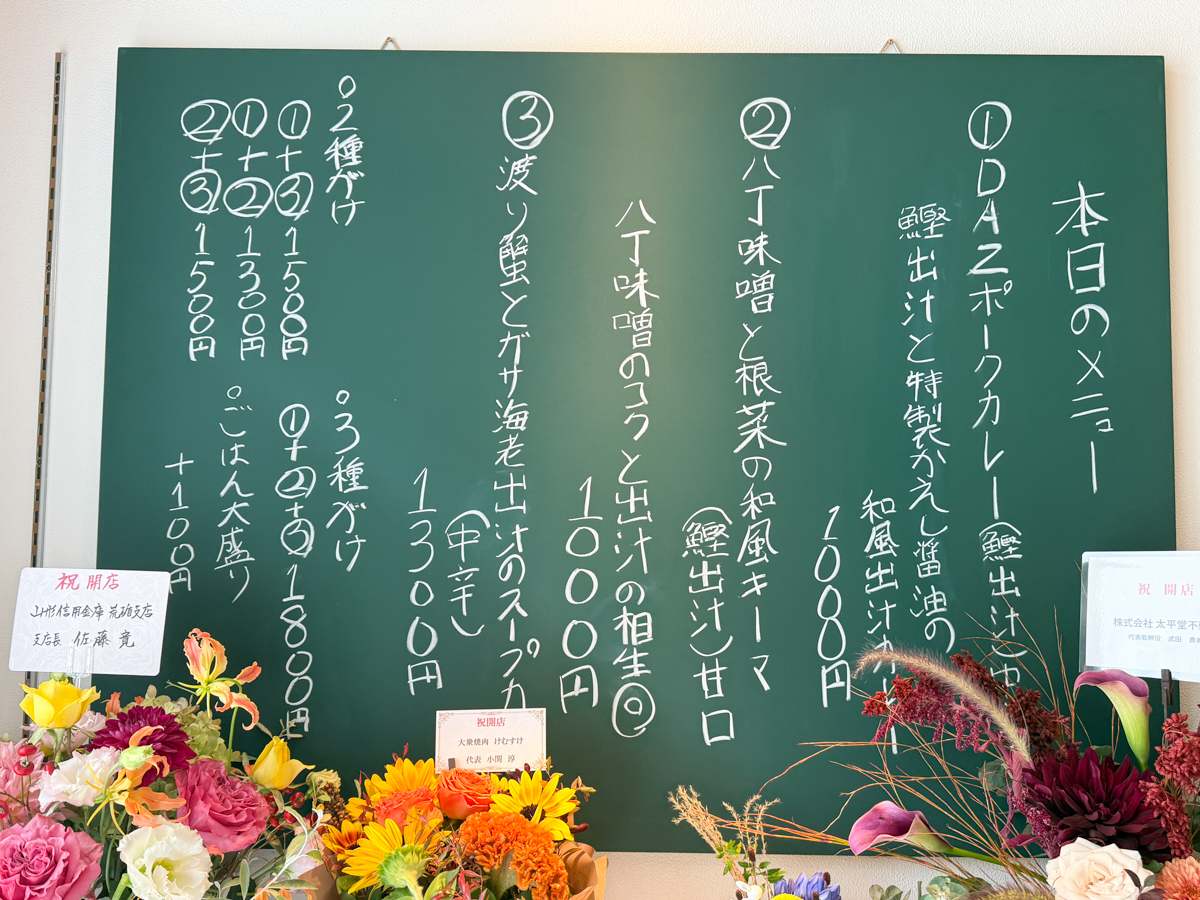 本日のメニュー
①DAZポークカレー(鰹出汁)中
鰹出汁と特製かえし醤油の
和風出汁カ
1000円
②八丁味噌と根菜の和風キーマ
(鰹出汁)甘口
八丁味噌のコクと出汁の相生◎
1000円
③渡り蟹とガサ海老出汁のスープカ
(中辛し)
1300円
○2種がけ
①+③1500円
①+②1300円
②+③1500円
○3種がけ
①+②+③1800円
○ごはん大盛り
+100円
祝 開店
山形信用金庫 荒砥支店
支店長 佐藤 寛
祝開店
大衆焼肉 けむすけ
代表 小関 淳
祝 開店
株式会社 太平堂不
代表取締役 武田